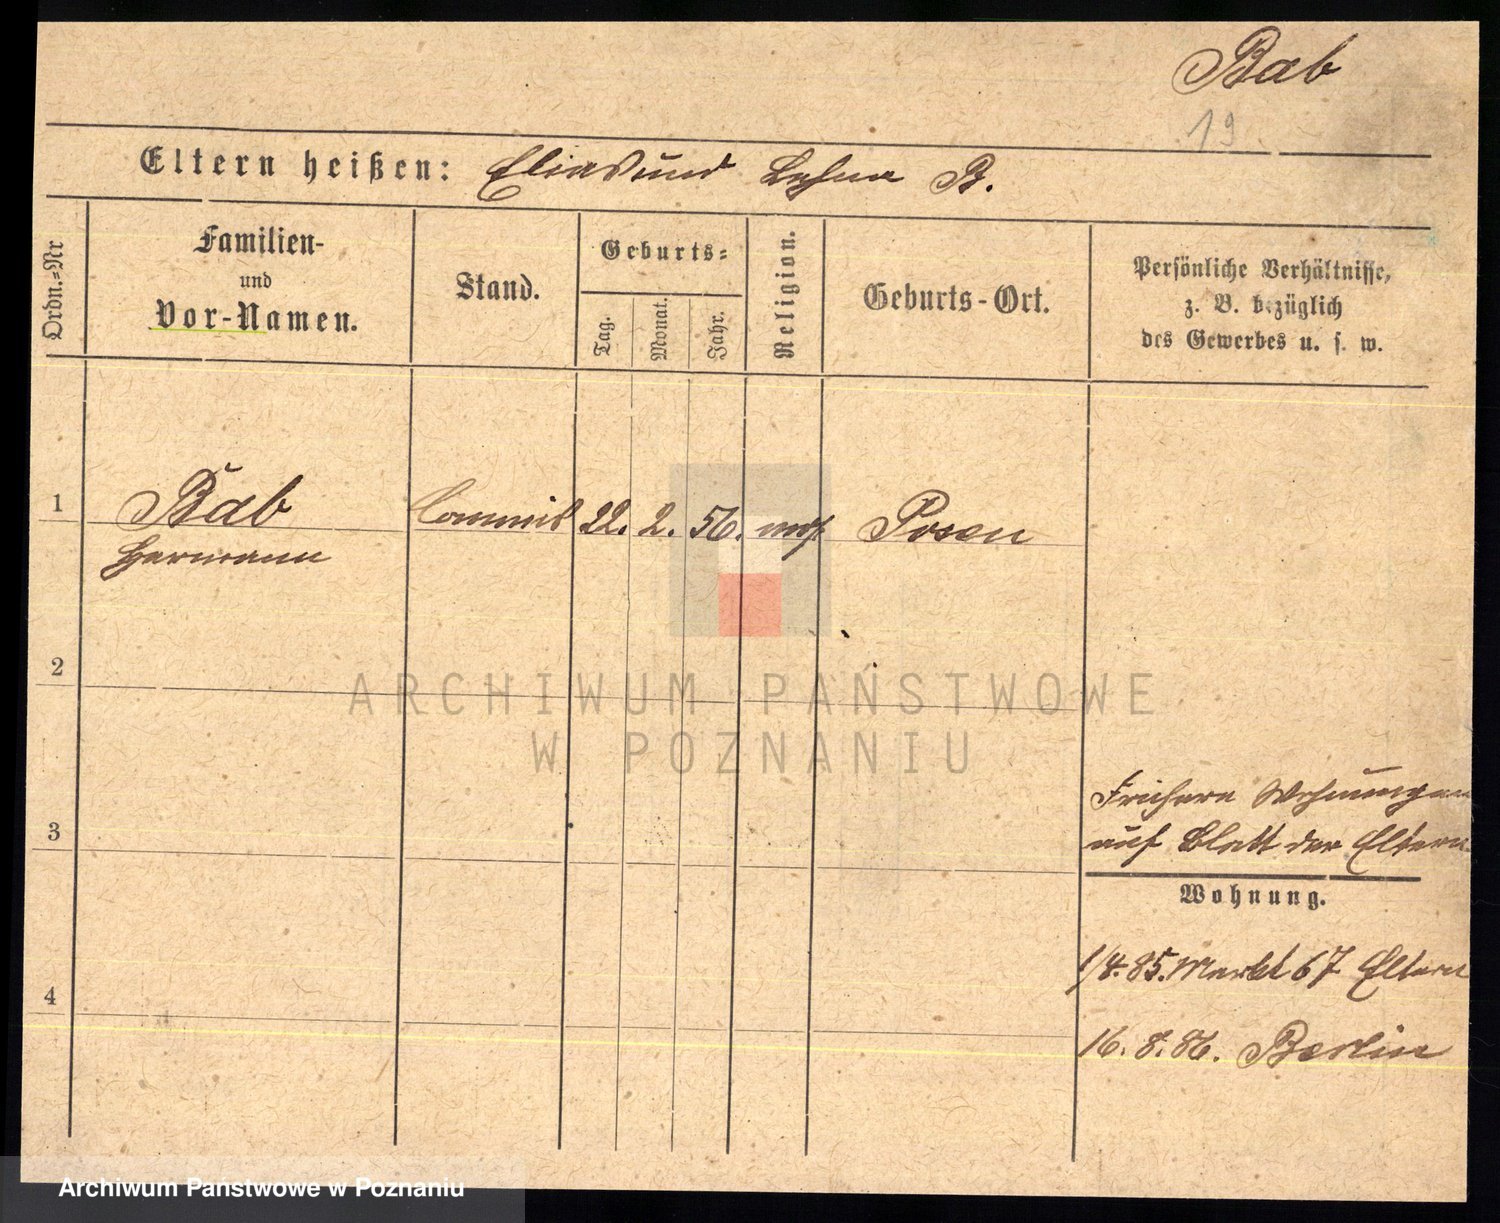 Bab
19
Eltern heißen: Elias und Lehna B.
Ordn.-Nr
Familien-
und
Vor-Namen.
Stand.
Geburts-
Tag.
Monat.
Jahr.
Religion.
Geburts-Ort.
Persönliche Verhältnisse,
z. B. bezüglich
des Gewerbes u. s. w.
1 Bab Commis 22. 2. 56. mos. Posen
Hermann
2
ARCHIWUM PAŃSTWOWE
W POZNANIU
3
Frühere Wohnungen
auf Blatt der Eltern
Wohnung.
1/4. 85. Markt 67 Eltern
4
16. 8. 86. Berlin
Archiwum Państwowe w Poznaniu